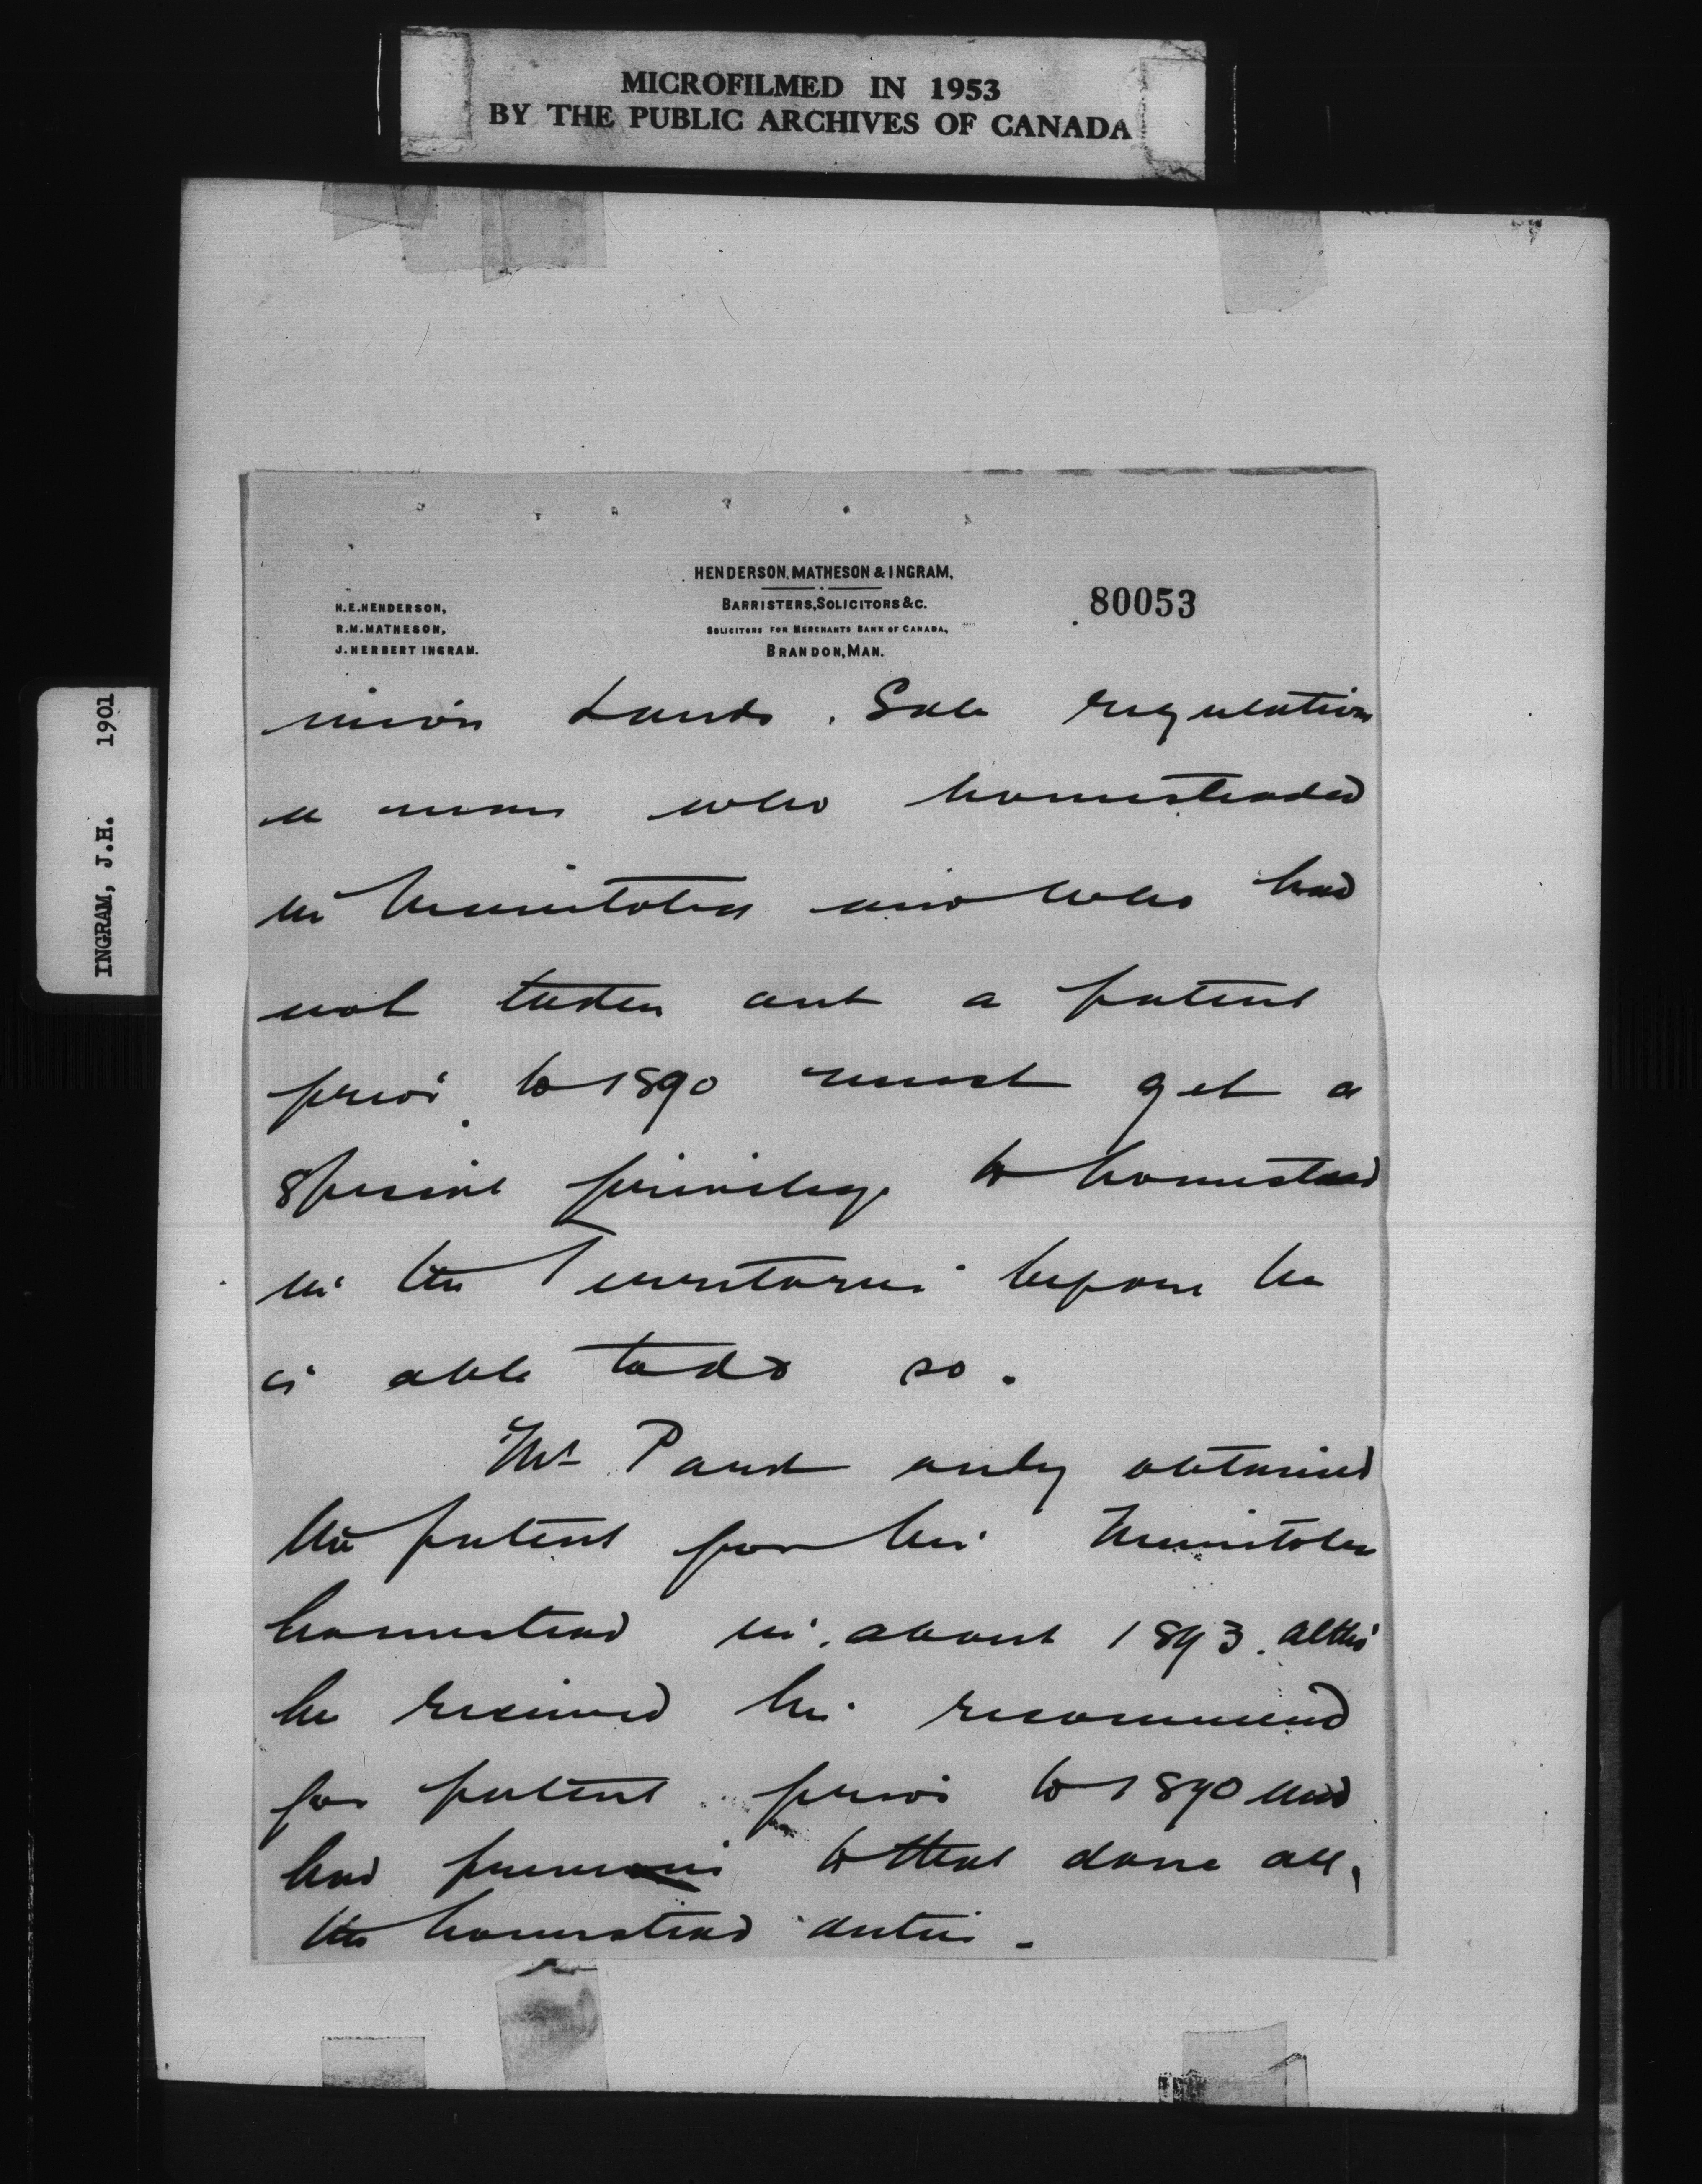 MICROFILMED IN 1953
BY THE PUBLIC ARCHIVES OF CANADA
INGRAM, J.H. 1901
HENDERSON, MATHESON & INGRAM,
BARRISTERS, SOLICITORS &C.
SOLICITORS FOR MERCHANTS BANK OF CANADA,
BRANDON, MAN.
H.E. HENDERSON,
R.M. MATHESON,
J. HERBERT INGRAM.
80053
minion Lands. Sale regulation
a man who homesteaded
in Manitoba and who had
not taken out a patent
prior to 1890 must get a
special privilege to homestead
in the Territories before he
is able to do so.
Mr only obtained
his patent for his Manitoba
homestead in about 1893. altho'
he received his recommend
for patent prior to 1890 and
had to that done all
the homestead duties.